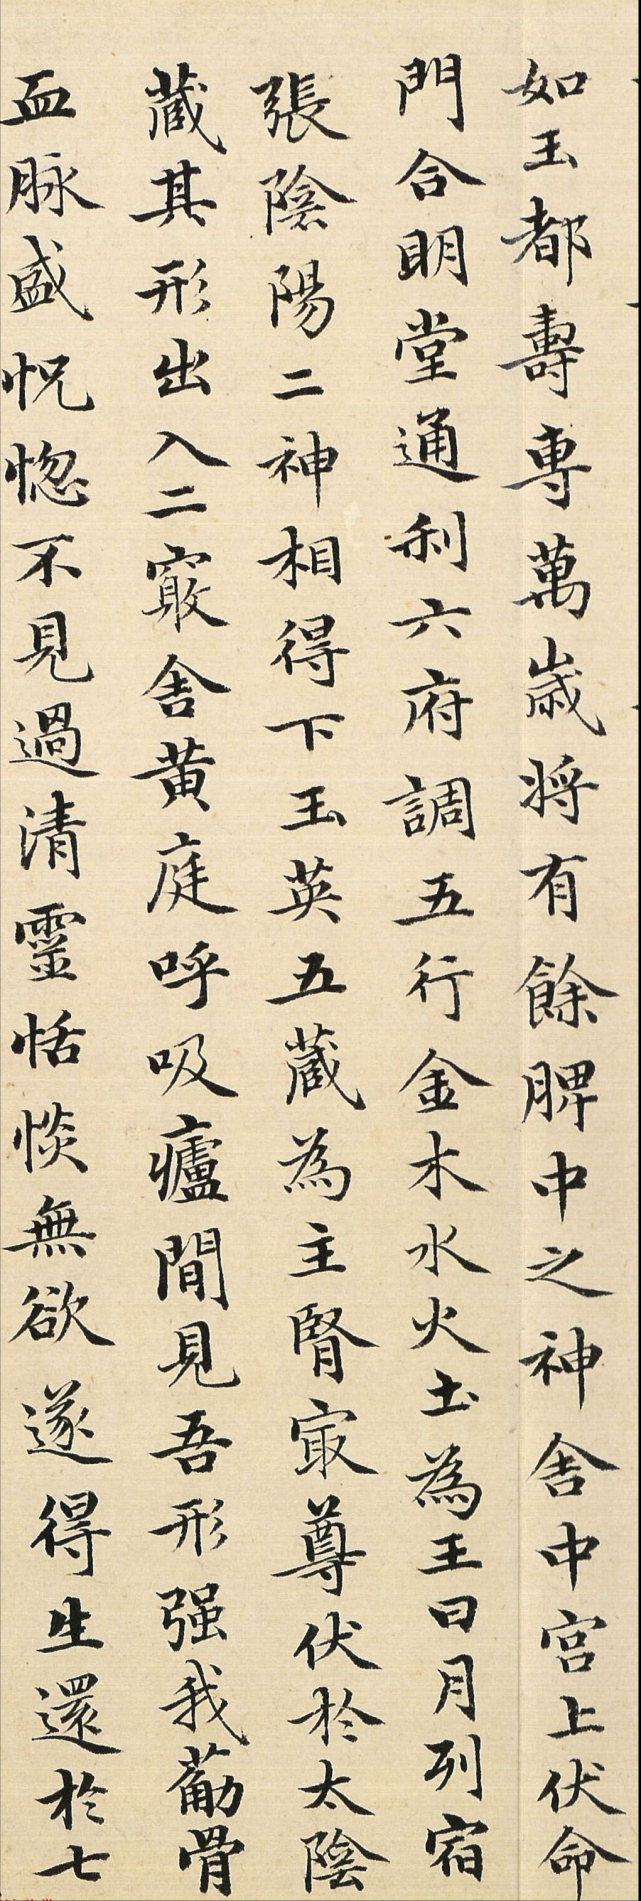 如玉都壽專萬歲将有餘脾中之神舍中宮上伏命
門合明堂通利六府調五行金木水火土為王日月列宿
張陰陽二神相得下玉英五蔵為主腎寂尊伏於太陰
蔵其形出入二竅舍黄庭呼吸廬間見吾形强我葋骨
血脉盛怳惚不見過清靈恬惔無欲遂得生還於七